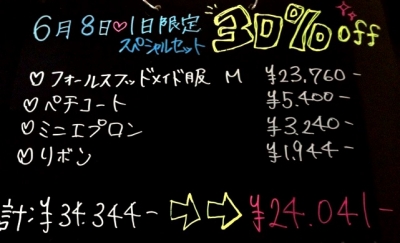 6月8日♡1日限定 30%off
スペシャルセット
♡フォールスフッドメイド服 M ¥23,760-
♡ペチコート ¥5,400-
♡ミニエプロン ¥3,240-
♡リボン ¥1,944-
計:¥34,344-⇨⇨¥24,041-